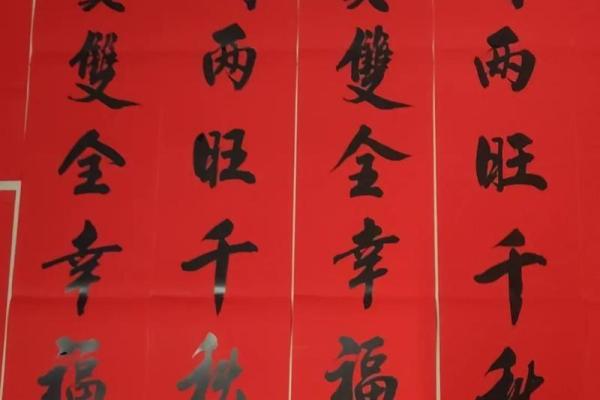 两旺千秋
雙全幸福
两旺千秋
雙全幸福